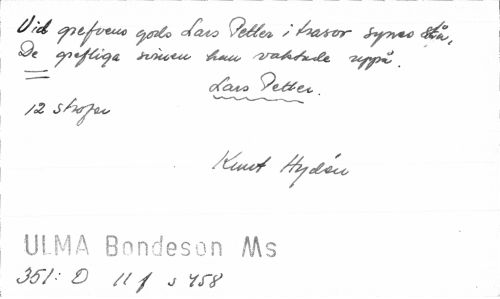 Vid grefvens gods Lars Petter i trasor synes stå,
De grefliga svinen han vaktade uppå.
Lars Petter.
12 strofer
Knut Hydén
ULMA Bondeson Ms
351: D 11 f s 458